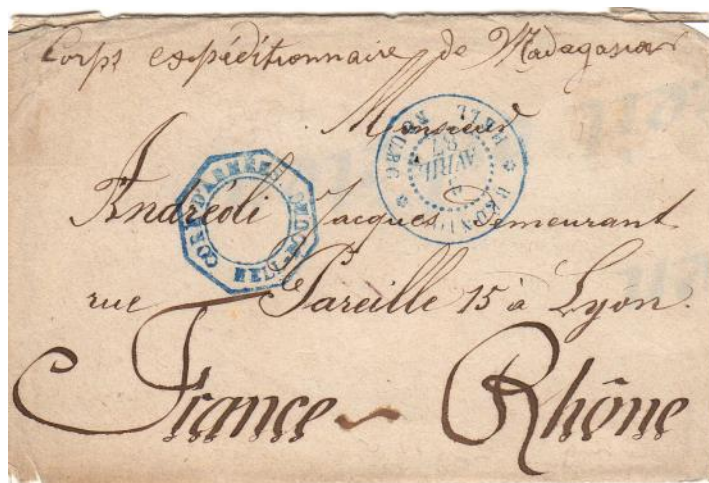 Corps expéditionnaire de Madagascar
Monsieur
Andréoli Jacques Demeurant
rue Pareille 15 à Lyon.
France - Rhône
CORR. D'ARMÉES
AVRIL
87